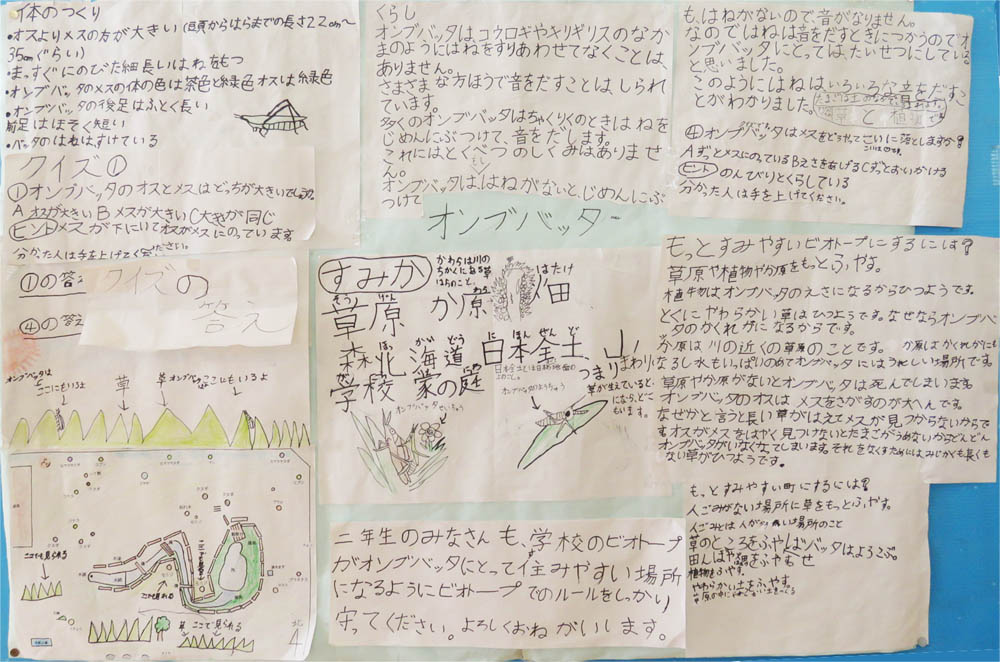 体のつくり
・オスよりメスの方が大きい(頭からはらまでの長さ22cm〜
35cmぐらい)
・まっすぐにのびた細長いはねをもつ
・オンブバッタのメスの体の色は茶色と緑色オスは緑色
・オンブバッタの後足はふとく長い
前足はほそく短い
・バッタのはねはすけている
クイズ①
①オンブバッタのオスとメスはどっちが大きいでしょう。
A オスが大きい B メスが大きい C大きさが同じ
ヒント メスが下にいてオスがメスにのっています
分かった人は手を上げてください。
①の答え
クイズの
答え
④の答え
くらし
オンブバッタは、コウロギやキリギリスのなか
まのようにはねをすりあわせてなくことは、
ありません。
さまざまな方ほうで音をだすことは、しられ
ています。
多くのオンブバッタはちゃくりくのときはねを
じめんにぶつけて、音をだします。
これにはとくべつのしくみはありませ
ん。
オンブバッタは、もしはねがないと、じめんにぶ
つけて
も、はねがないので、音がなりません。
なのではねは音をだすときにつかうのでオ
ンブバッタにとっては、たいせつにしている
と思いました。
このようにはねはいろいろな音をだすこ
とがわかりました。
④オンブバッタはメスをどうやってこいに落としますか?
Aずっとメスにのっている Bえさをあげる Cずっとおいかける
ヒント のんびりとくらしている
分かった人は手を上げてください。
オンブバッター
すみか
かわらは川の
ちかくにある草
はらのこと。
草原 か原 畑
そう げん わら はたけ
森 北海道 日本全土、山
ほっ かい どう に ほん ぜん ど
学校 家の庭
つまり
まわりに
草が生えていると
ころならどこにで
もいます。
もっとすみやすいビオトープにするには?
草原や植物やか原をもっとふやす。
植物はオンブバッタのえさになるからひつようです。
とくにやわらかい草はひつようです。なぜならオンブバッ
タのかくれがになるからです。
か原は川の近くの草原のことです。 か原はかくれがにも
なるし水もいっぱいのめてオンブバッタにはうれしい場所です。
草原やか原がないとオンブバッタは死んでしまいます。
オンブバッタのオスはメスをさがすのが大へんです。
なぜかと言うと長い草がはえてメスが見つからないからで
すオスがメスをはやく見つけないとたまごがうめないからどんどん
オンブバッタがいなくなってしまいます。それをなくすためにはみじかくも長くも
ない草がひつようです。
オンブバッタは
ここにもいるよ
草
草
オンブバッタは
ここにもいるよ
ここでも見られる
ここでも見れる
草
ここで見られる
北
4
二年生のみなさんも、学校のビオトープ
がオンブバッタにとって住みやすい場所
になるようにビオトープでのルールをしっかり
守ってください。よろしくおねがいします。
もっとすみやすい町にするには?
人ごみがない場所に草をもっとふやす。
人ごみとは人がいっぱいいる場所のこと
草のところをふやせばバッタはよろこぶ。
田んぼや畑をふやせ
植物をふやす。
やわらかい土をふやす。